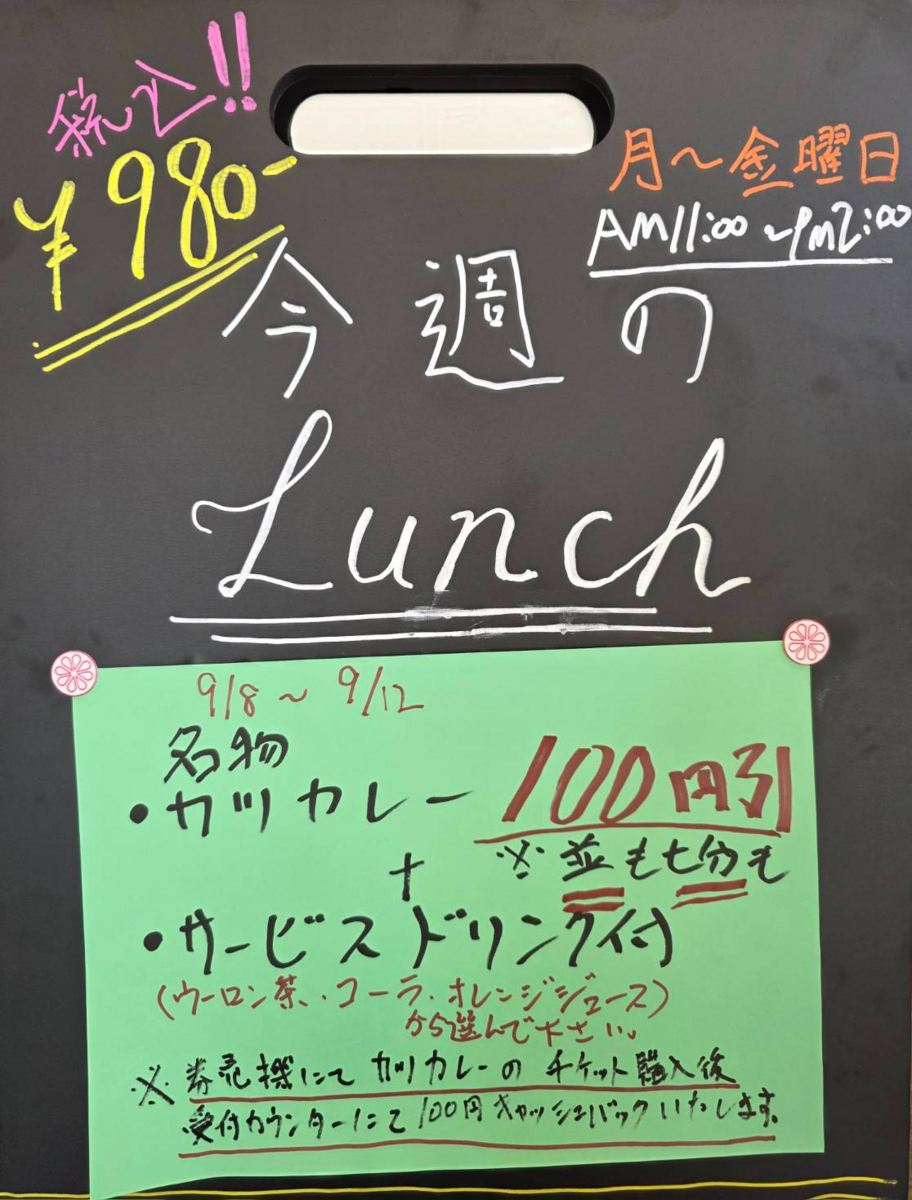 税込!!
¥980-
月～金曜日
AM11:00～PM2:00
今週の
Lunch
9/8～9/12
名物
・カツカレー 100円引
※並も七分も
+
・サービスドリンク付
(ウーロン茶、コーラ、オレンジジュース)
から選んで下さい。
※券売機にてカツカレーのチケット購入後
受付カウンターにて100円キャッシュバックいたします。